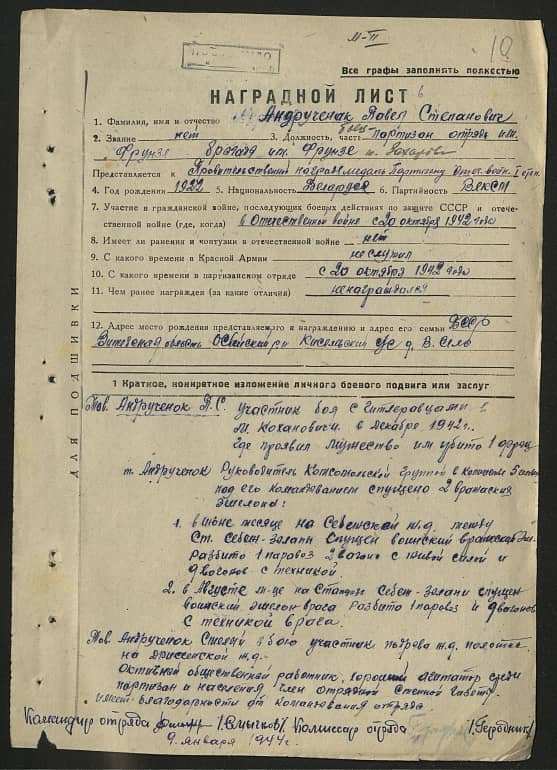 м-п
19
Все графы заполнять полностью
НАГРАДНОЙ ЛИСТ
1. Фамилия, имя и отчество Андрученак Павел Степанович
2. Звание нет 3. Должность, часть боец партизан отряда им.
Фрунзе бригада им. Фрунзе т. Захарова
Представляется к Правительственной награде медаль Партизану Отеч. войн. I степ.
4. Год рождения 1922 5. Национальность Беларус 6. Партийность ВЛКСМ
7. Участие в гражданской войне, последующих боевых действиях по защите СССР и отече-
ственной войне (где, когда) в Отечественной войне с 20 октября 1942 года
8. Имеет ли ранения и контузии в отечественной войне нет
9. С какого времени в Красной Армии не служил
10. С какого времени в партизанском отряде с 20 октября 1942 года
11. Чем ранее награжден (за какие отличия) ненаграждался
12. Адрес место рождения представляемого к награждению и адрес его семьи БССР
Витебская область Освейский р-н Кисельский с/с д. В. Село
ДЛЯ ПОДШИВКИ
1 Краткое, конкретное изложение личного боевого подвига или заслуг
Тов. Андрученок П.С. участник боя с Гитлеровцами в
м. Кохановичи в декабре 1942 г.
где проявил мужество им убито 1 фриц
т. Андрученок Руководитель Комсомольской группой в количестве 5 человек
под его командованием спущено 2 вражеских
эшелона:
1. в июне месяце на Себежской ж.д. между
Ст. Себеж-Зелапи спущен воинский вражеский эш.
Разбито 1 паровоз 2 вагона с живой силой и
9 вагонов с техникой
2. в Августе м-це на Себеж-Зелапи спущен
воинский эшелон врага разбито 1 паровоз и 9 вагонов
с техникой врага.
Тов. Андрученок участник подрыва ж.д. полотна
на Дриссенской ж.д.
Активный общественный работник, хороший агитатор среди
партизан и населения член отрядной Стенной газеты.
имеет благодарности от командования отряда.
Командир отряда /Смычков/. Комиссар отряда /Городник/
9. января 1944 г.